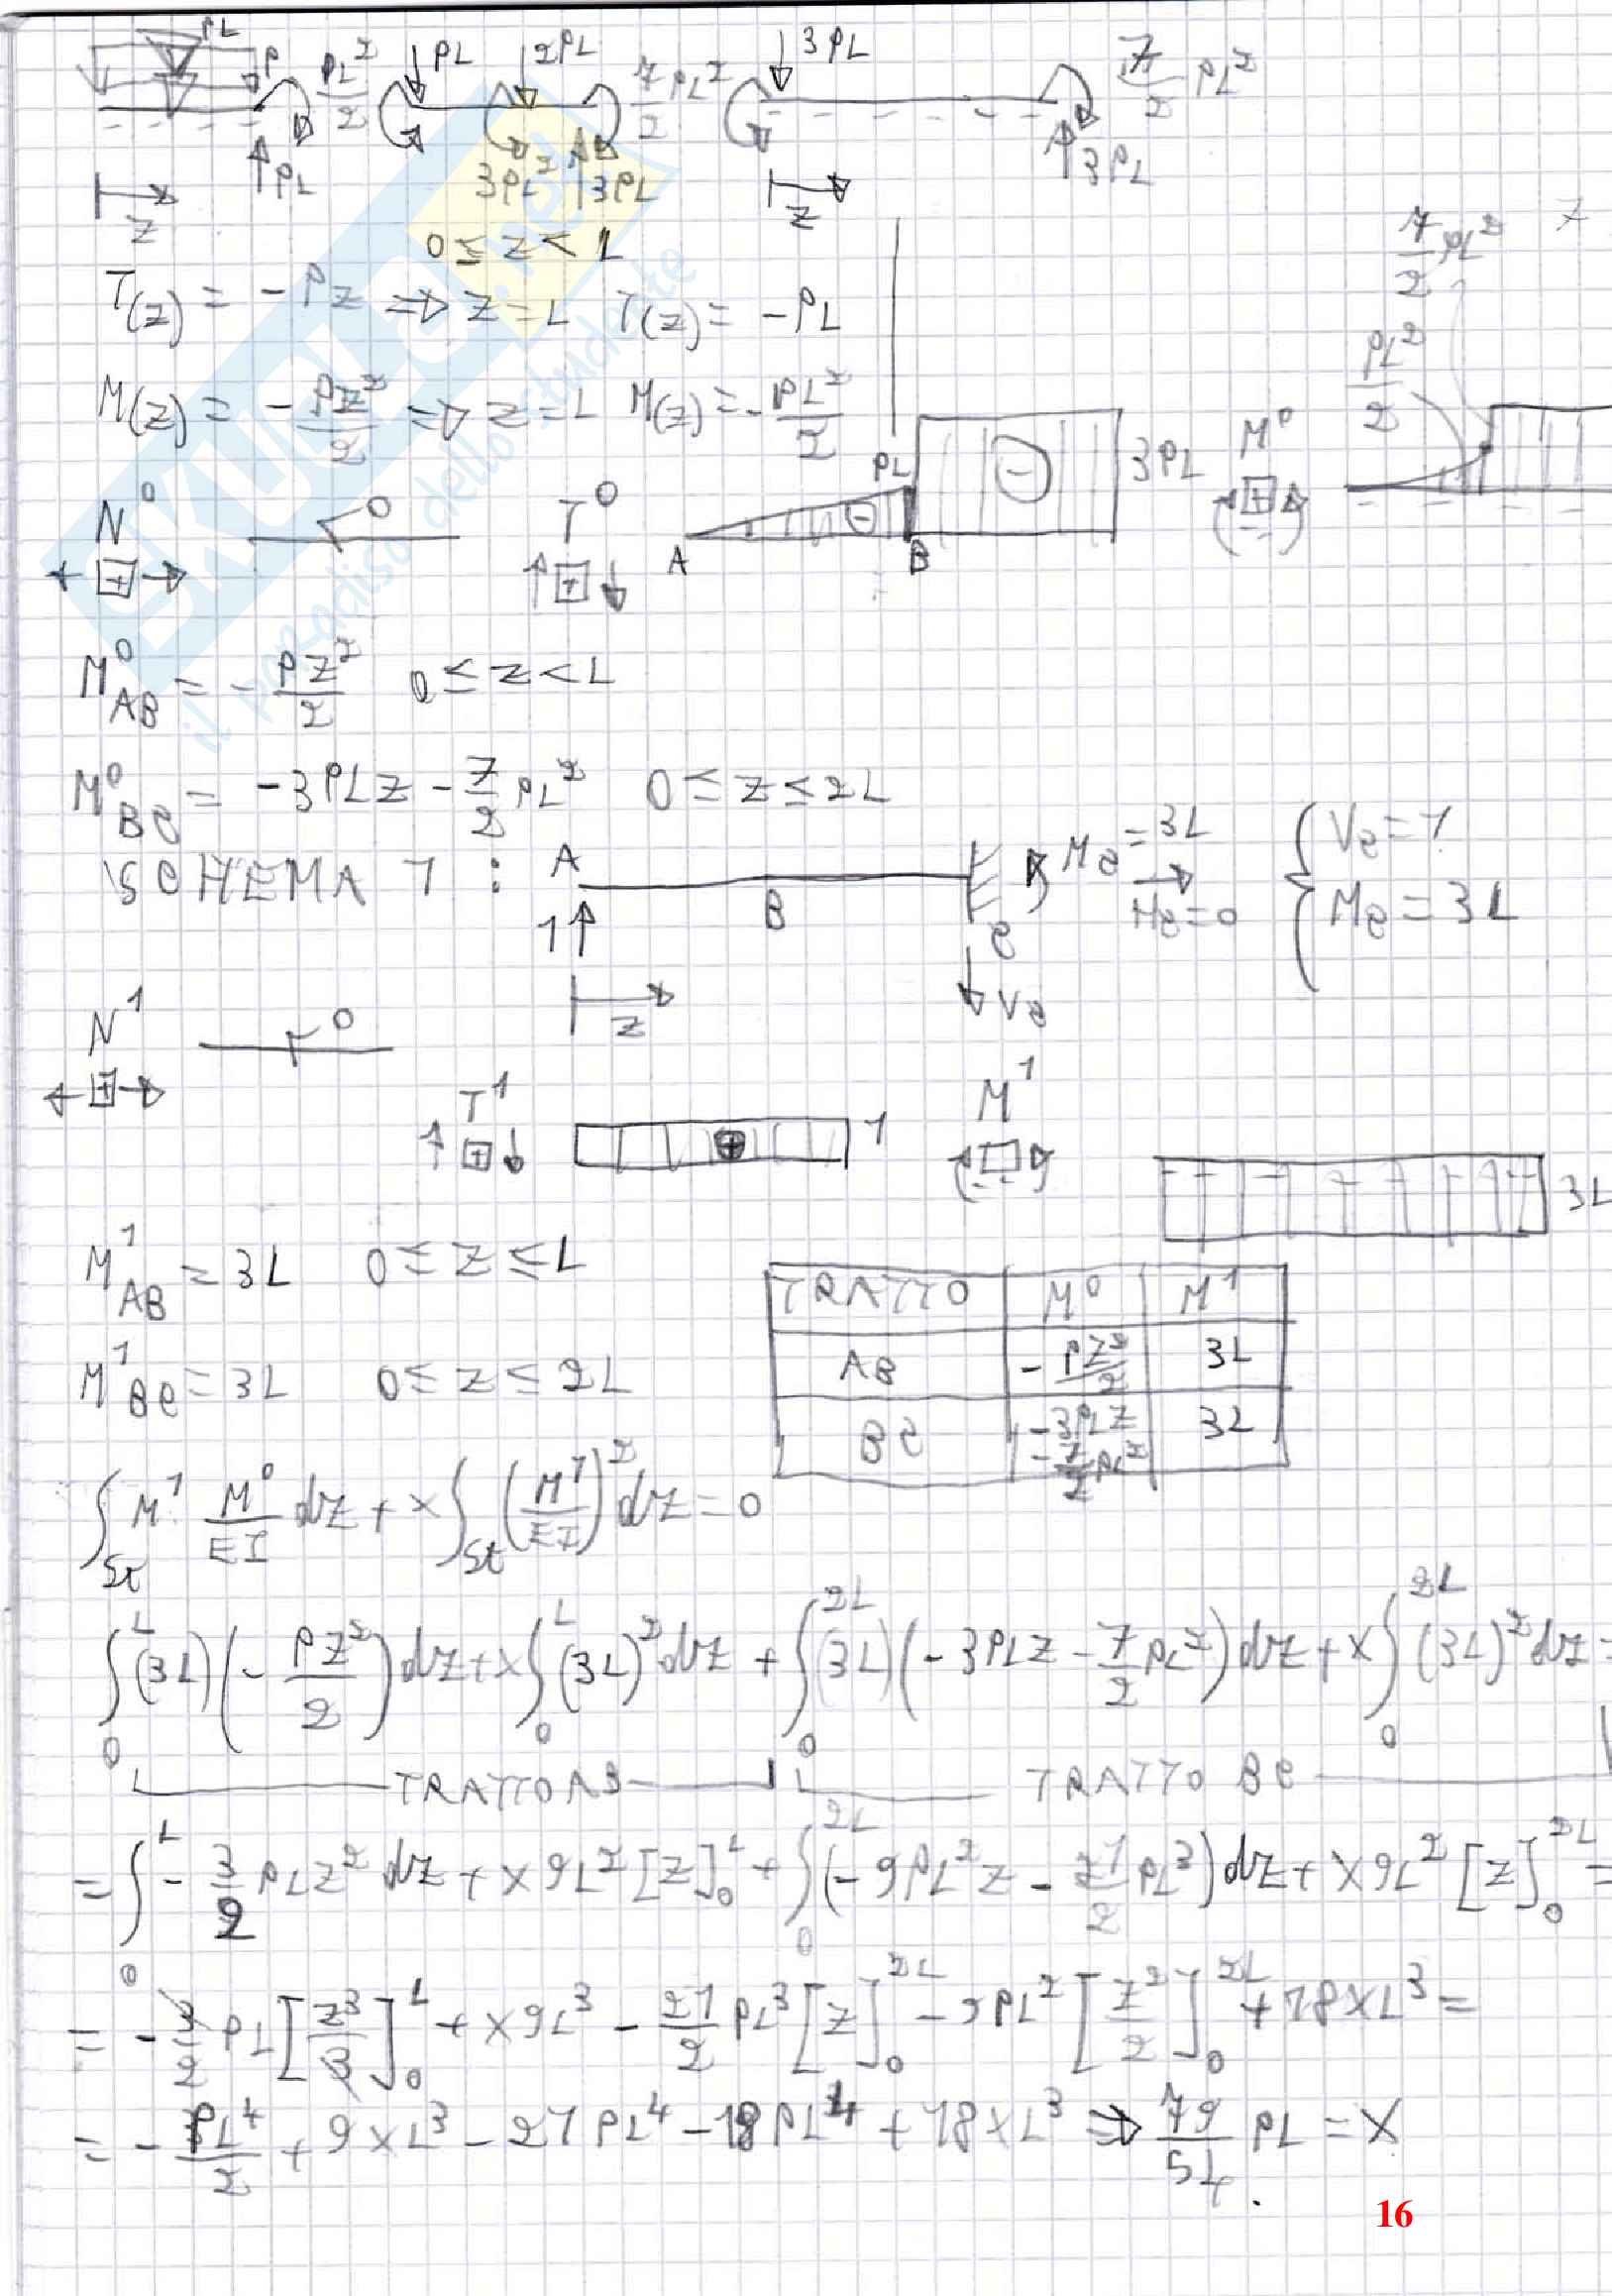 PL
P
PL²/2
PL
2PL
7/2 PL²
3PL
7/2 PL²
PL
3PL²
3PL
3PL
z
z
0 ≤ z < L
T(z) = -Pz => z = L T(z) = -PL
7/2 PL²
PL²/2
M(z) = -Pz²/2 => z = L M(z) = -PL²/2
N⁰ 0 T⁰ PL 3PL M⁰
+ + - - +
A B
M⁰AB = -Pz²/2 0 ≤ z < L
M⁰BC = -3PLz - 7/2 PL² 0 ≤ z ≤ 2L
SCHEMA 1 : A B C 1 MC = 3L HC = 0 { VC = 1
MC = 3L
z VC
N¹ 0
+
T¹ + + 1 M¹
3L
M¹AB = 3L 0 ≤ z ≤ L
M¹BC = 3L 0 ≤ z ≤ 2L
TRATTO M⁰ M¹
AB -Pz²/2 3L
BC -3PLz -7/2 PL² 3L
∫St M¹ M⁰/EI dz + X ∫St (M¹/EI)² dz = 0
∫0^L (3L)(-Pz²/2) dz + X ∫0^L (3L)² dz + ∫0^2L (3L)(-3PLz - 7/2 PL²) dz + X ∫0^2L (3L)² dz =
TRATTO AB TRATTO BC
= ∫0^L -3/2 PLz² dz + X9L² [z]0^L + ∫0^2L (-9PL²z - 21/2 PL³) dz + X9L² [z]0^2L =
= -3/2 PL [z³/3]0^L + X9L³ - 21/2 PL³ [z]0^2L - 9PL² [z²/2]0^2L + 18XL³ =
= -PL⁴/2 + 9XL³ - 21PL⁴ - 18PL⁴ + 18XL³ => 79/54 PL = X
16
SKUOLA.net
il paradiso dello studente